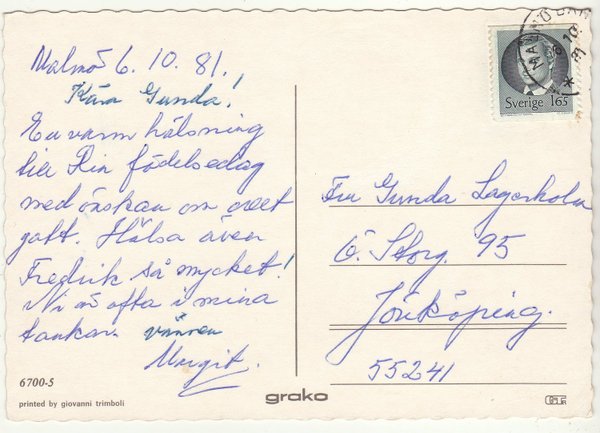 Malmö 6.10.81.
Kära Gunda!
En varm hälsning
till Din födelsedag
med önskan om allt
gott. Hälsa även
Fredrik så mycket!
Ni är ofta i mina
tankar. vännen
Margit.
6700-5
printed by giovanni trimboli
grako
MALMÖ BAN
Sverige 165
Fru Gunda Lagerholm
Ö. Storg. 95
Jönköping.
55241